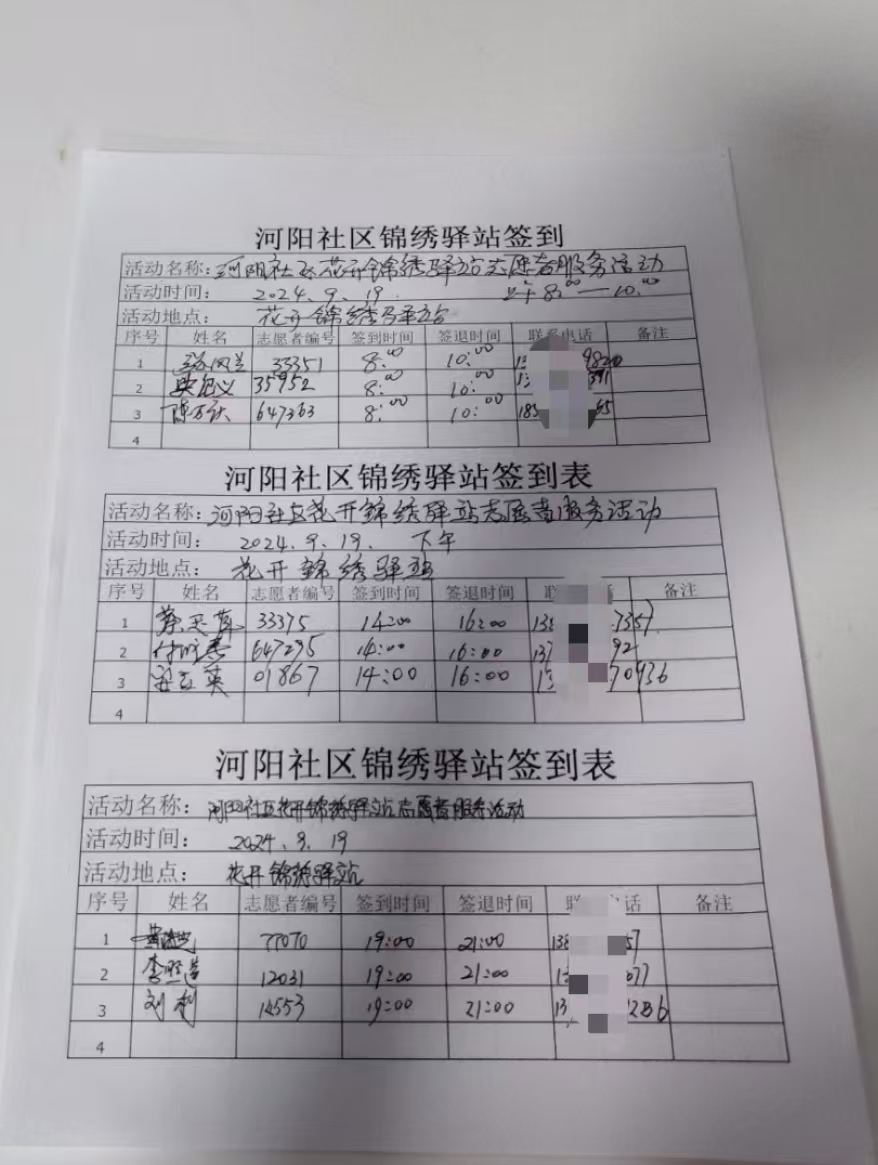 河阳社区锦绣驿站签到
活动名称：河阳社区花开锦绣驿站志愿者服务活动
活动时间： 2024.9.19. 上午8:00—10:00
活动地点： 花开锦绣驿站
序号 姓名 志愿者编号 签到时间 签退时间 联系电话 备注
1 33351 8:00 10:00
2 35952 8:00 10:00
3 647363 8:00 10:00
4
河阳社区锦绣驿站签到表
活动名称：河阳社区花开锦绣驿站志愿者服务活动
活动时间： 2024.9.19. 下午
活动地点： 花开锦绣驿站
序号 姓名 志愿者编号 签到时间 签退时间 备注
1 33375 14:00 16:00 138 7357
2 647295 14:00 16:00 137 92
3 01867 14:00 16:00 13 70936
4
河阳社区锦绣驿站签到表
活动名称：河阳社区花开锦绣驿站志愿者服务活动
活动时间： 2024.9.19
活动地点： 花开锦绣驿站
序号 姓名 志愿者编号 签到时间 签退时间 话 备注
1 77070 19:00 21:00 138 57
2 12031 19:00 21:00 13 077
3 刘利 14553 19:00 21:00 13 1286
4